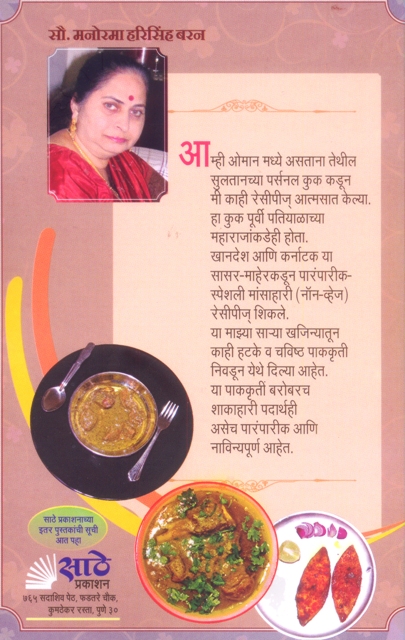 सौ. मनोरमा हरिसिंह बरन
आम्ही ओमान मध्ये असताना तेथील
सुलतानच्या पर्सनल कुक कडून
मी काही रेसीपीज् आत्मसात केल्या.
हा कुक पूर्वी पतियाळाच्या
महाराजांकडेही होता.
खानदेश आणि कर्नाटक या
सासर-माहेरकडून पारंपारीक-
स्पेशली मांसाहारी (नॉन-व्हेज)
रेसीपीज् शिकले.
या माझ्या साऱ्या खजिन्यातून
काही हटके व चविष्ठ पाककृती
निवडून येथे दिल्या आहेत.
या पाककृतीं बरोबरच
शाकाहारी पदार्थही
असेच पारंपारीक आणि
नाविन्यपूर्ण आहेत.
साठे प्रकाशनाच्या
इतर पुस्तकांची सूची
आत पहा
साठे
प्रकाशन
७६५ सदाशिव पेठ, फडतरे चौक,
कुमठेकर रस्ता, पुणे ३०